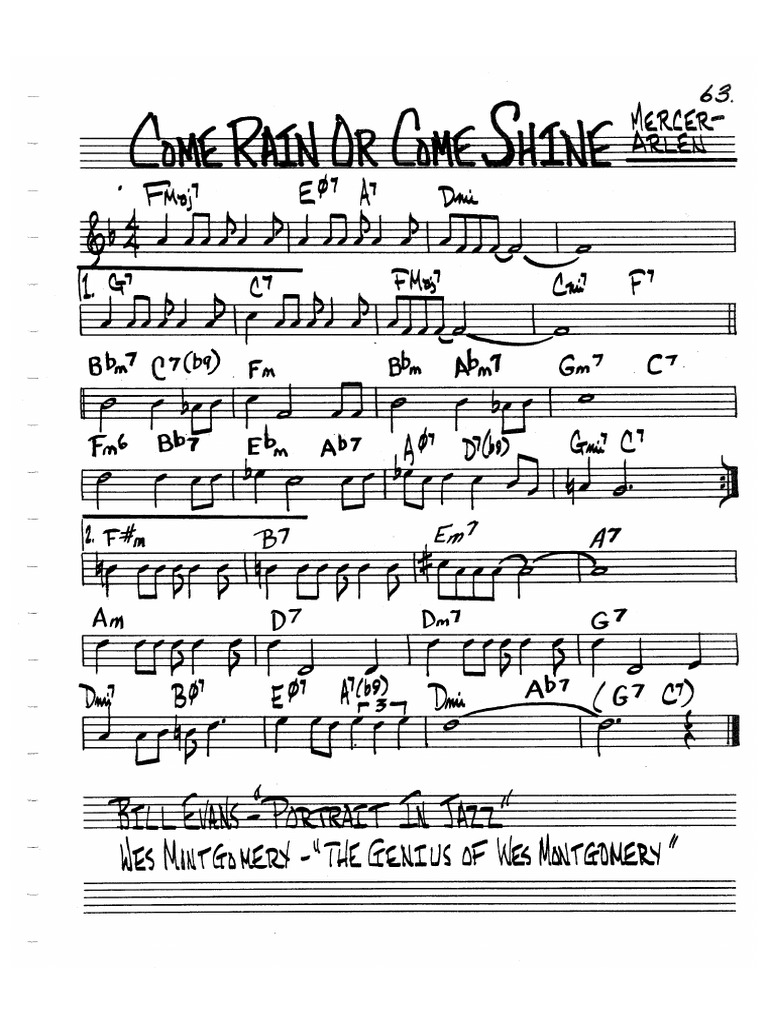 63.
COME RAIN OR COME SHINE
MERCER-
ARLEN
FMaj7 EØ7 A7 Dmi
1. G7 C7 FMaj7 Cmi7 F7
Bbm7 C7(b9) Fm Bbm Abm7 Gm7 C7
Fm6 Bb7 Ebm Ab7 AØ7 D7(b9) Gmi7 C7
2. F#m B7 Em7 A7
Am D7 Dm7 G7
Dmi7 BØ7 EØ7 A7(b9) 3 Dmi Ab7 (G7 C7)
BILL EVANS - "PORTRAIT IN JAZZ"
WES MONTGOMERY - "THE GENIUS OF WES MONTGOMERY"